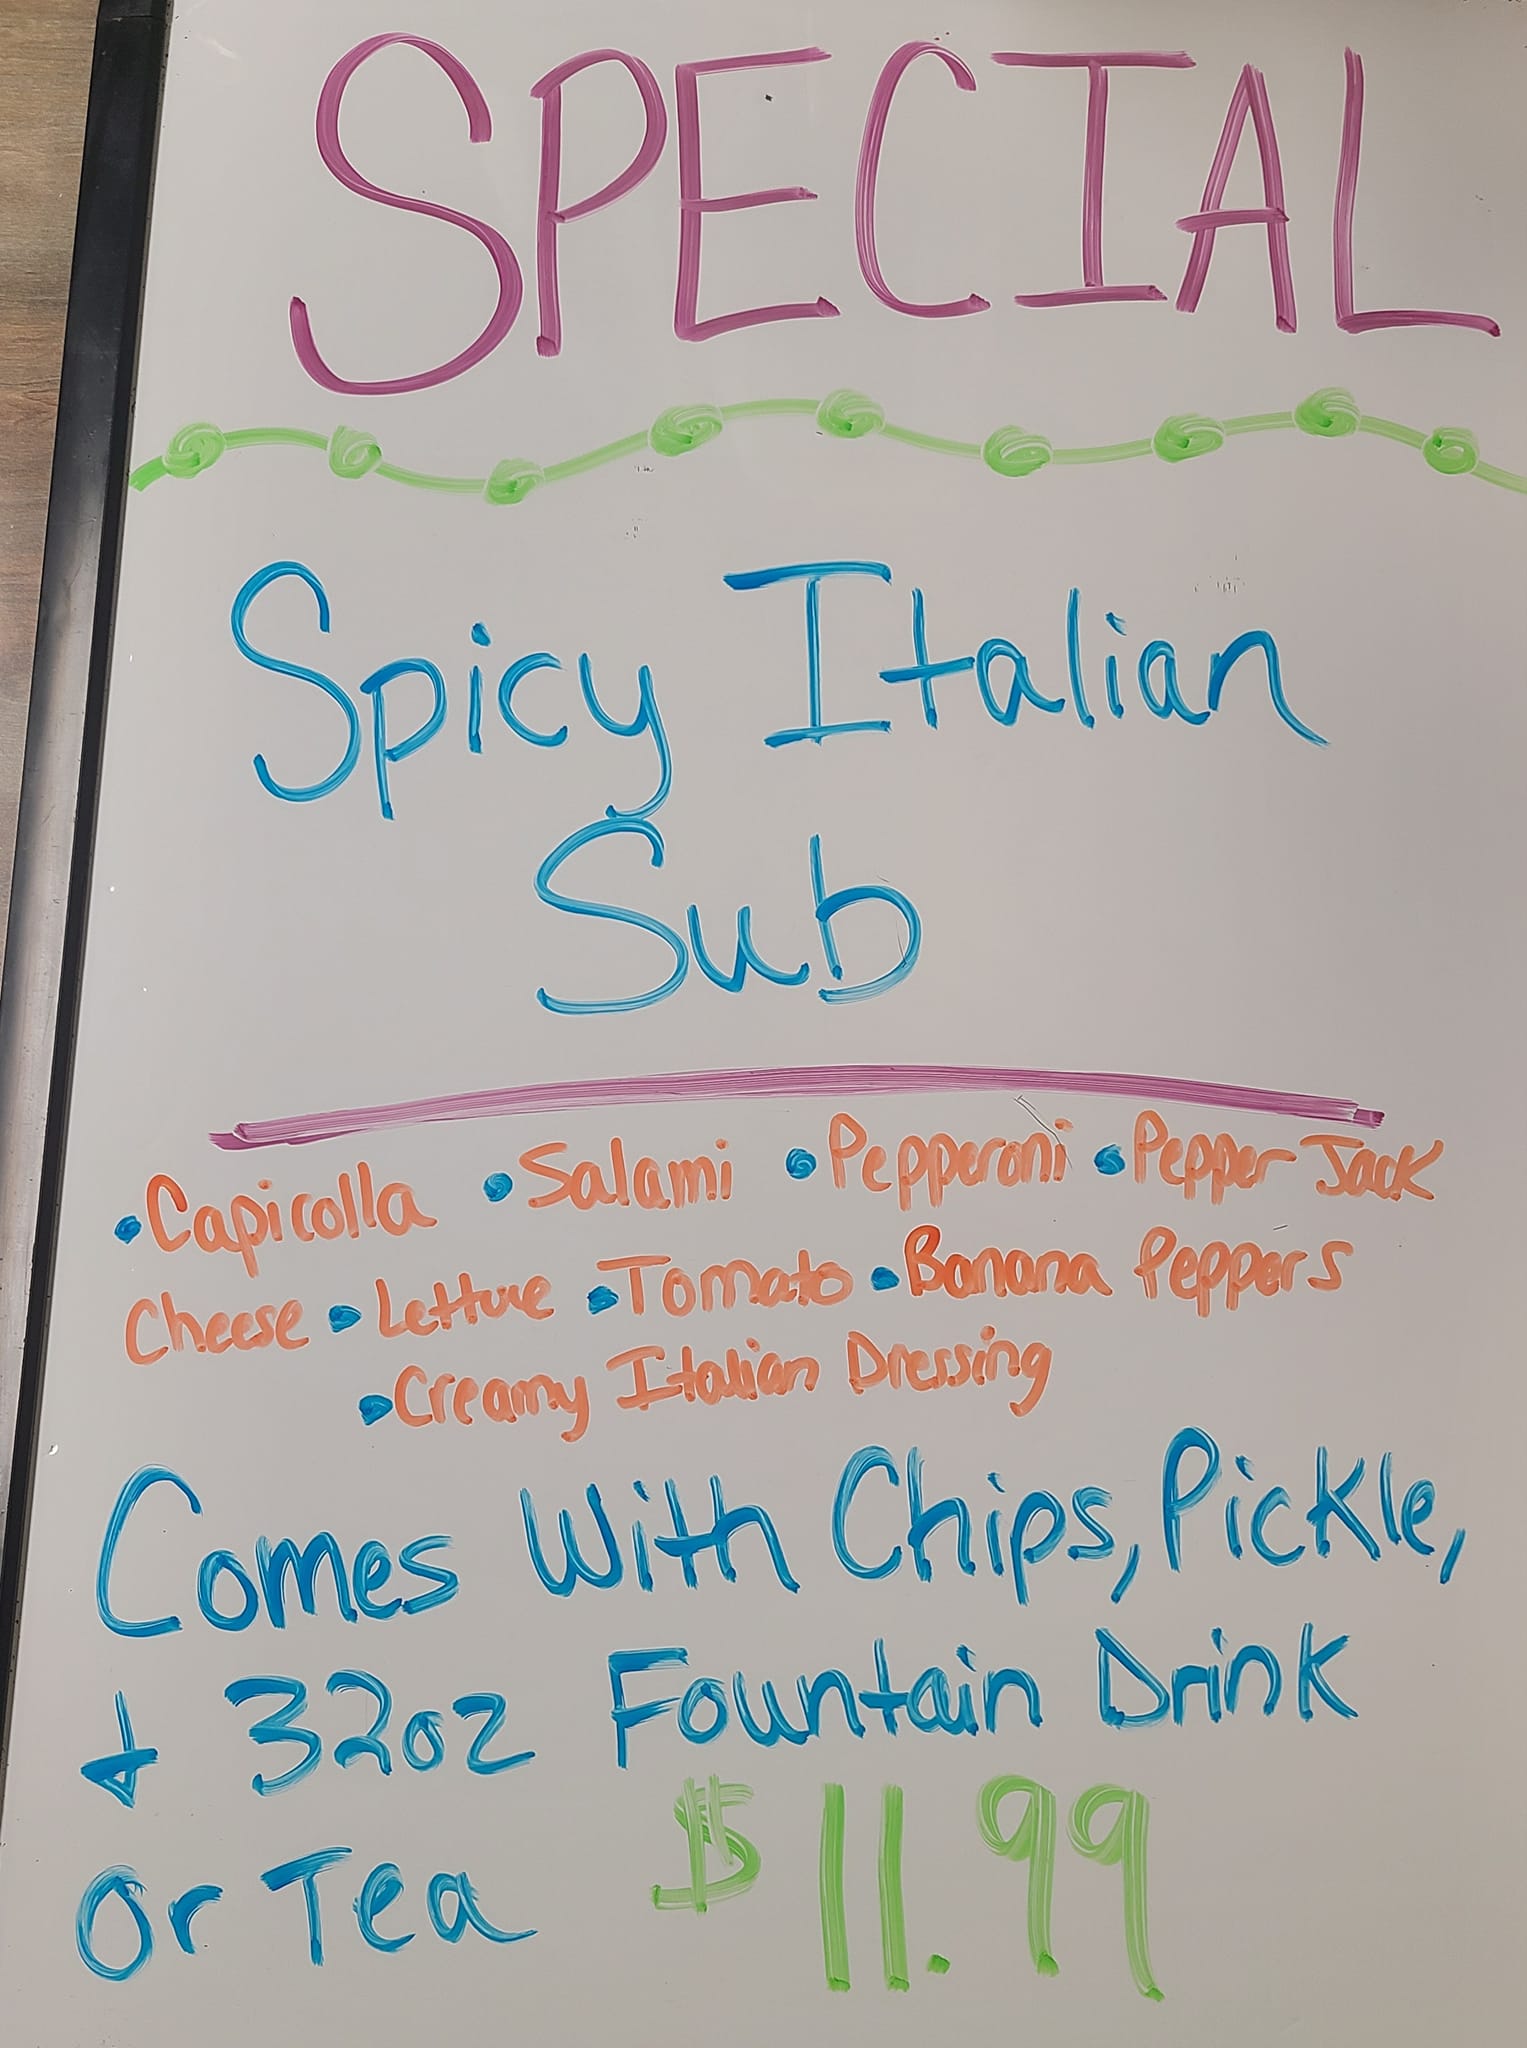 SPECIAL
Spicy Italian
Sub
•Capicolla •Salami •Pepperoni •Pepper Jack
Cheese •Lettuce •Tomato •Banana Peppers
•Creamy Italian Dressing
Comes With Chips, Pickle,
+ 32oz Fountain Drink
Or Tea $11.99